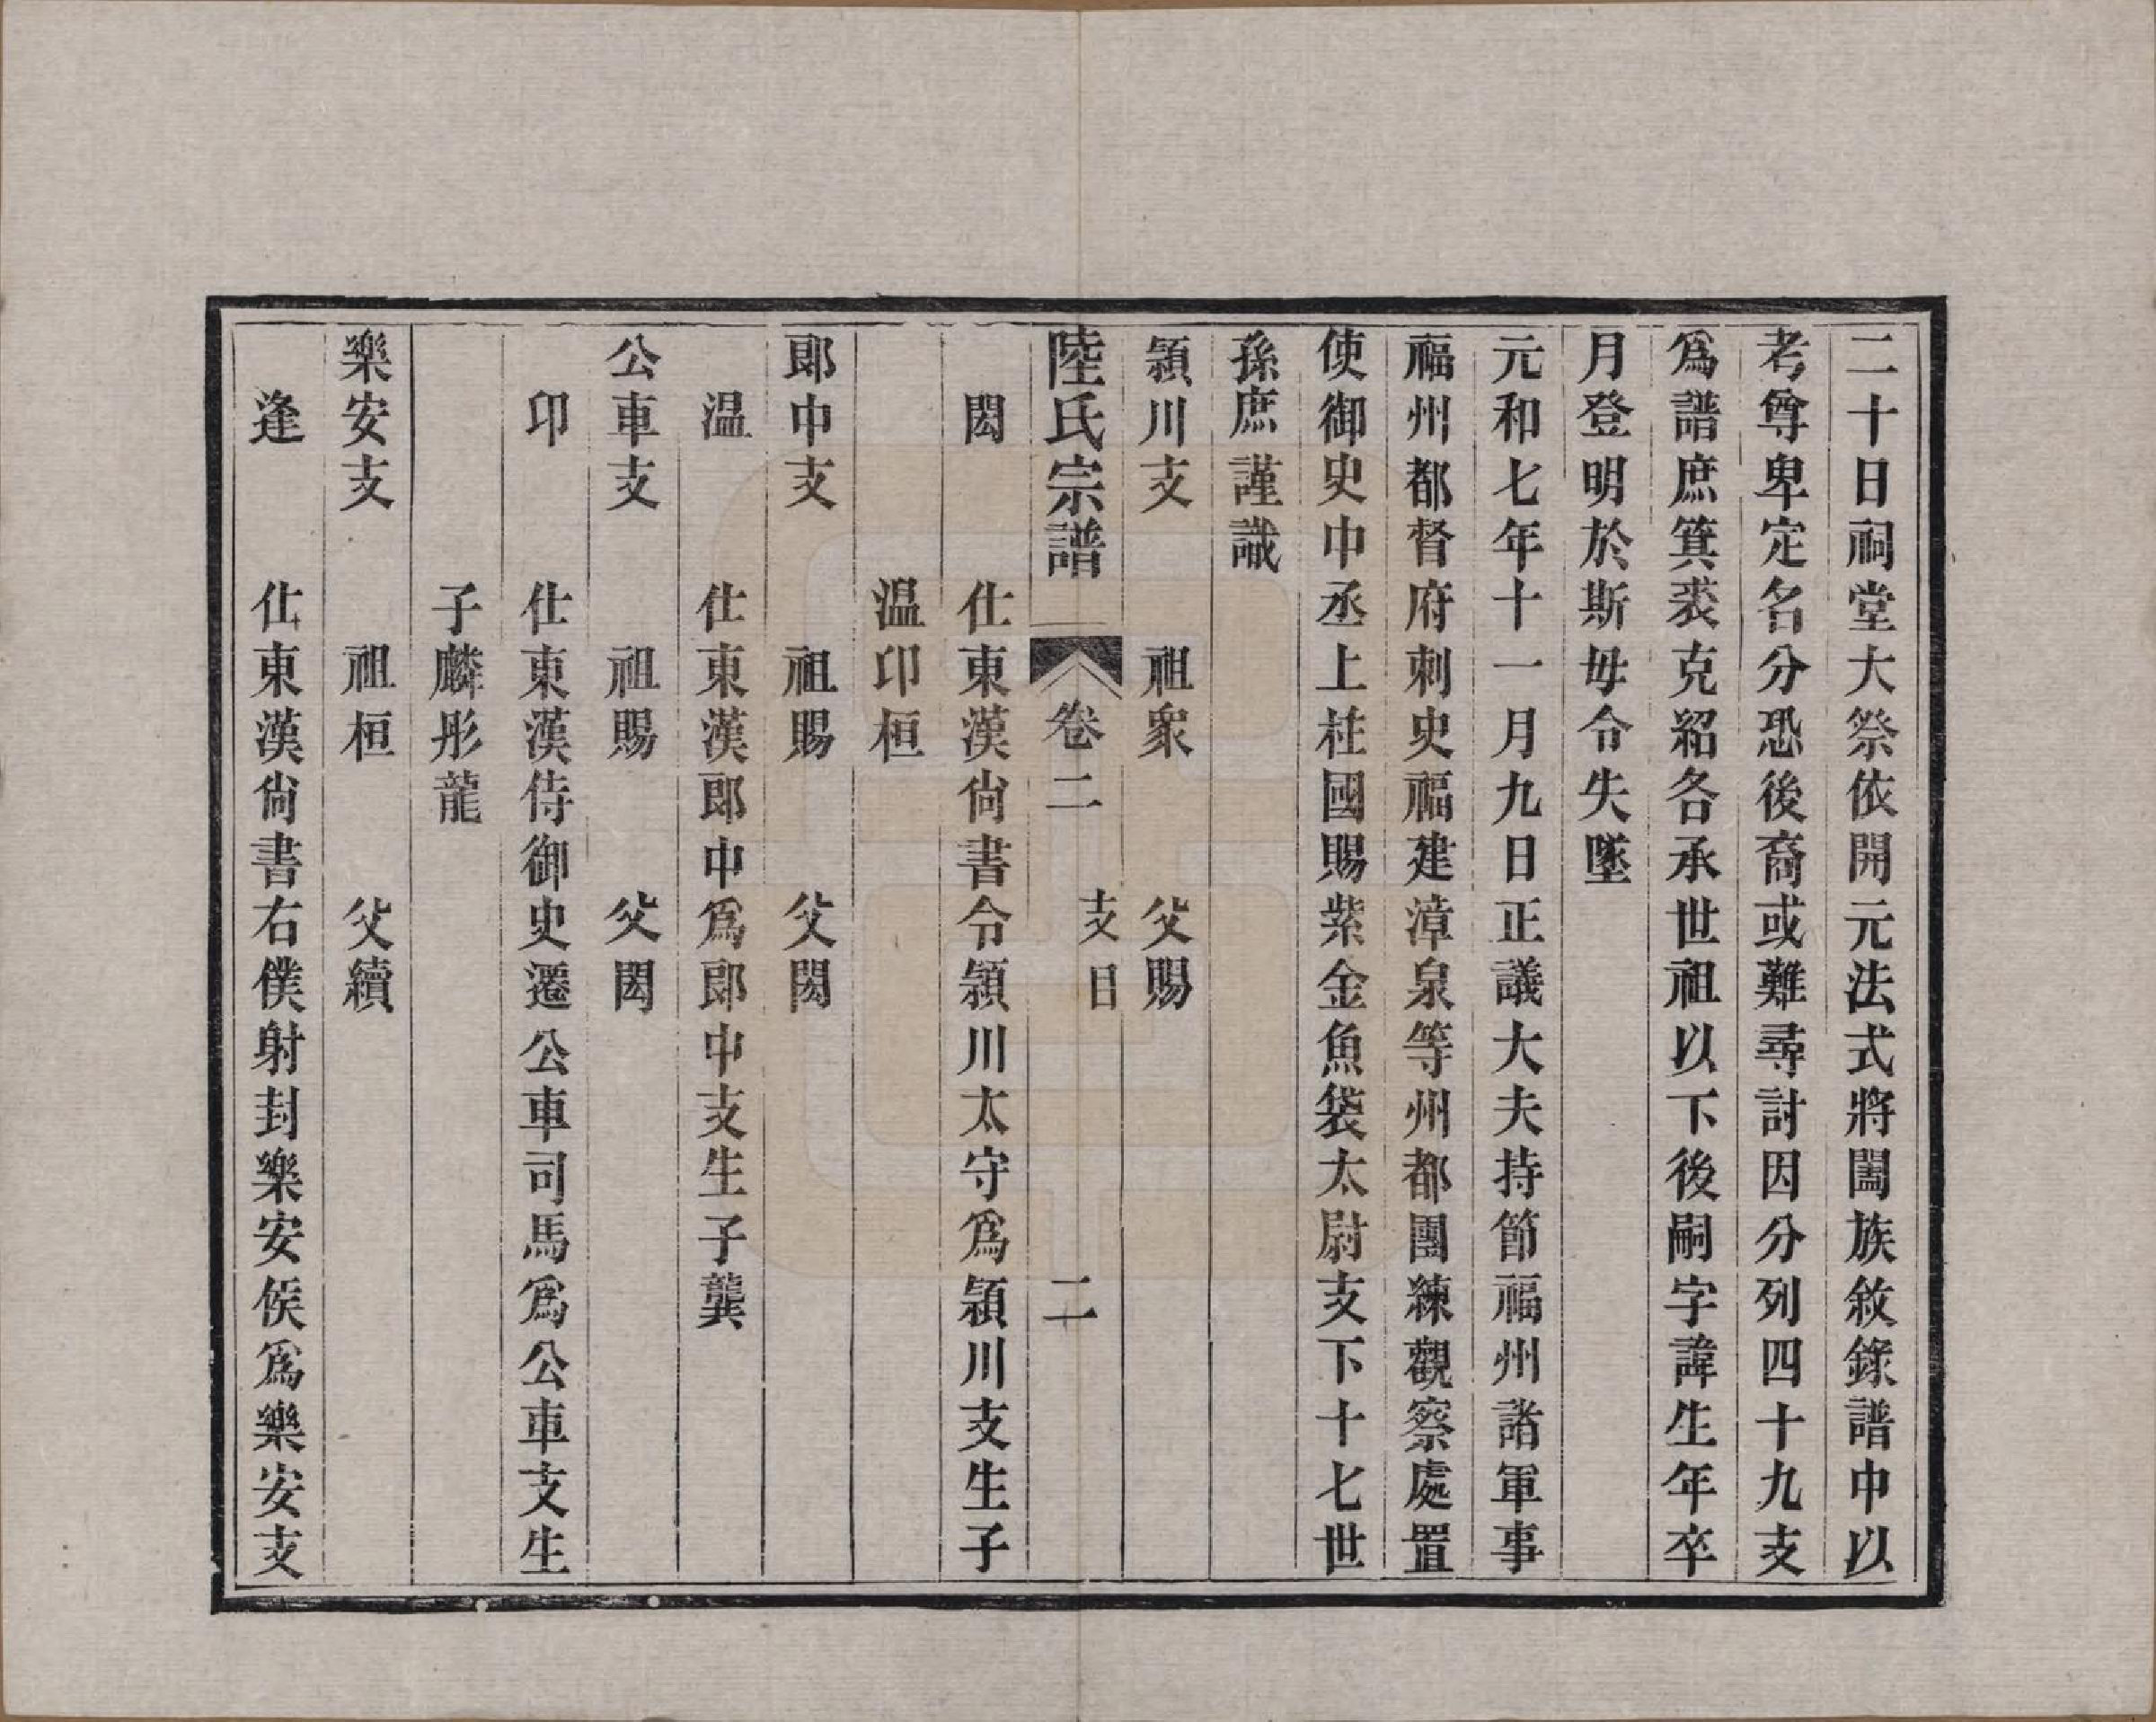 二十日祠堂大祭依開元法式將闔族敘錄譜中以
考尊卑定名分恐後裔或難尋討因分列四十九支
爲譜庶箕裘克紹各承世祖以下後嗣字諱生年卒
月登明於斯毋令失墜
元和七年十一月九日正議大夫持節福州諸軍事
福州都督府刺史福建漳泉等州都團練觀察處置
使御史中丞上柱國賜紫金魚袋太尉支下十七世
孫庶謹識
潁川支　祖衆　父賜
陸氏宗譜　卷二　支目　二
閎　仕東漢尙書令潁川太守爲潁川支生子
溫卬桓
郞中支　祖賜　父閎
溫　仕東漢郞中爲郞中支生子龔
公車支　祖賜　父閎
卬　仕東漢侍御史遷公車司馬爲公車支生
子麟彤龍
樂安支　祖桓　父續
逢　仕東漢尙書右僕射封樂安侯爲樂安支